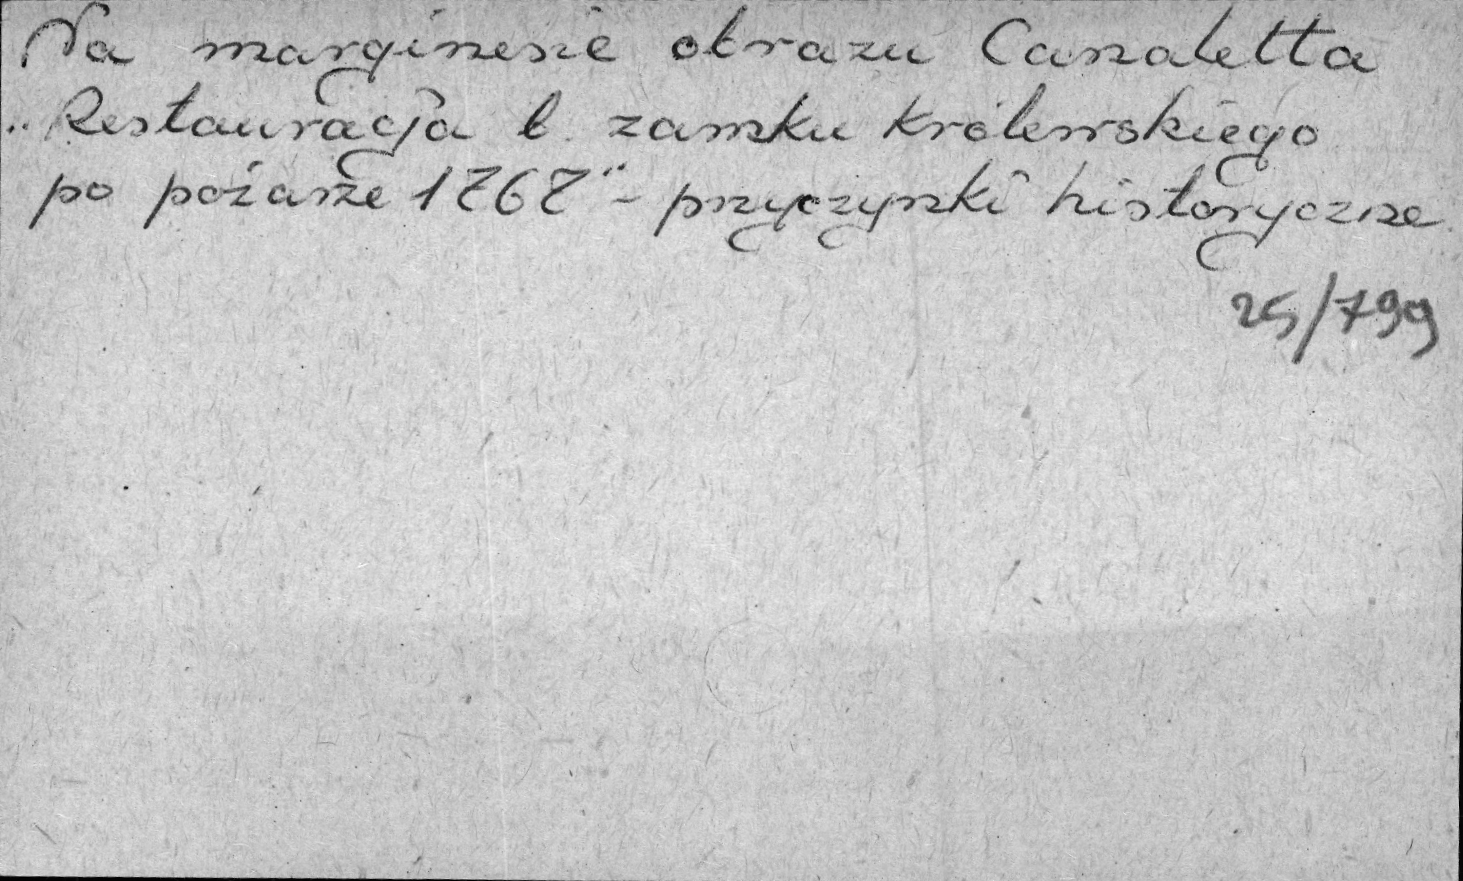 Na marginesie obrazu Canaletta
„Restauracja b. zamku królewskiego
po pożarze 1767" - przyczynki historyczne
25/799